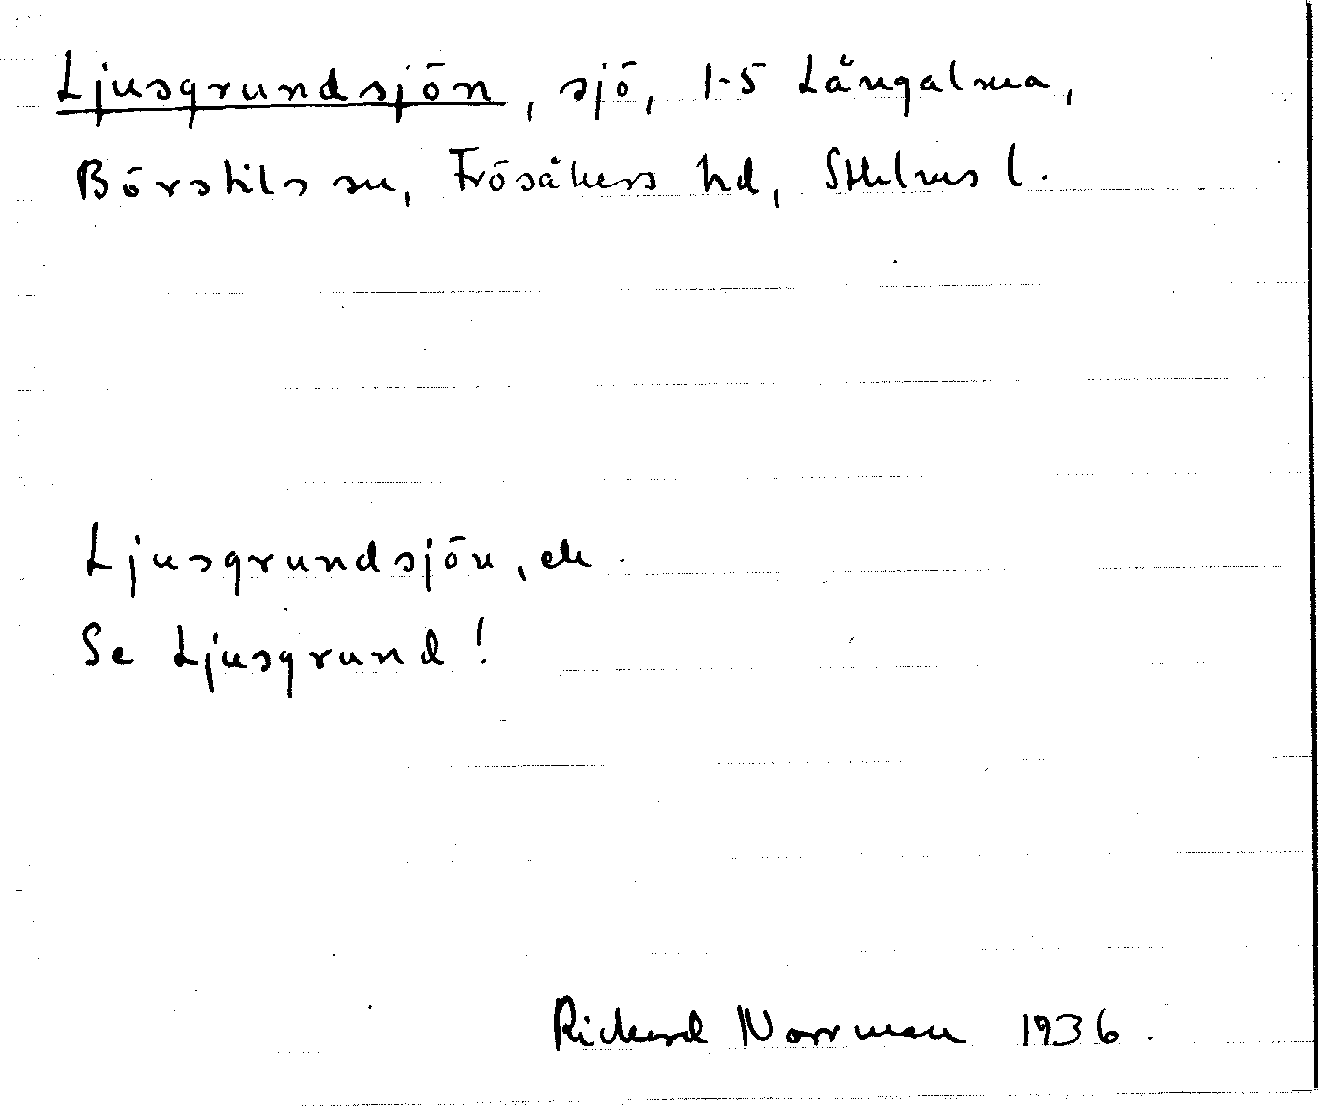 Ljusgrundsjön, sjö, 1-5 Långalma,
Börstils sn, Frösåkers hd, Sthlms l.
Ljusgrundsjön, ek.
Se Ljusgrund!
Rickard Norrman 1936.